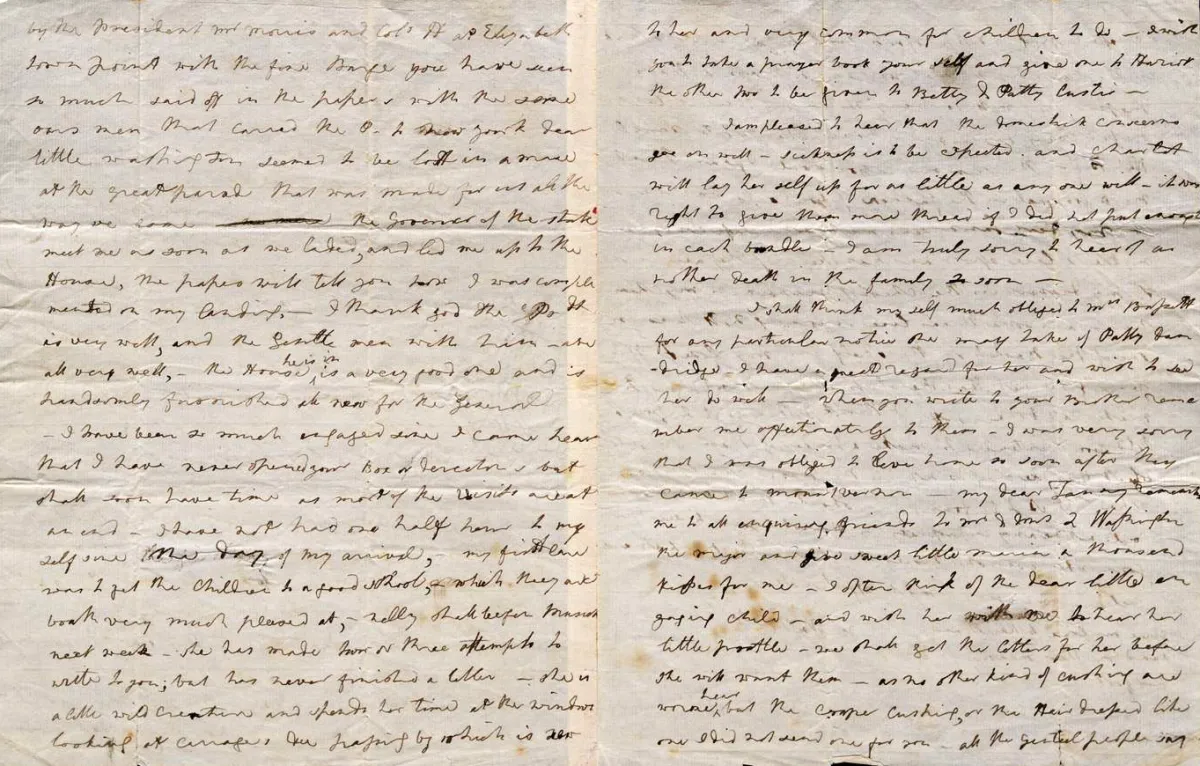 by the President mr morris and Colo H at Elizabeth
town point with the fine Barge you have seen
so much said off in the papers with the same
oars men that carred the P. to new york dear
little washington seemed to be lost in a maze
at the great parad that was made for us all the
way we come the Governor of the state
meet me as soon as we landed, and led me up to the
House, the papers will tell you how I was comple
mented on my landing, - I thank god the Pdt
is very well, and the Gentle men with him are
all very well, - the House he is in is a very good one and is
handsomly furnished all new for the General
- I have been so much engaged since I came hear
that I have never opened your Box or derections but
shall soon have time as most of the visits are at
an end - I have not had one half hour to my
self since the day of my arrival, - my first care
was to get the Children to a good school, - which they are
boath very much pleased at, - nelly shall begin Musick
next week - she has made two or three attempts to
write to you; but has never finished a letter - she is
a little wild creature and spends her time at the window
looking at carrages &c passing by which is new
to her and very common for children to do - I wish
you to take a prayer book your self and give one to Hariot
the other two to be given to Betty & Patty Custis -
I am pleased to hear that the domestick concerns
goe on well - sickness is to be expected. and Charlot
will lay her self up for as little as any one will - it was
right to give them more thread if I did not put enough
in each bundle - I am truly sorry to hear of an
nother death in the family so soon -
I shall think my self much obliged to mrs Bassett
for any particular notice she may take of Patty dan
-dridge - I have a great regard for her and wish to see
her do well - when you write to your Brother reme
mber me affectionately to them - I was very sorry
that I was obliged to leve home so soon after they
came to mount vernon - my dear Fanny remember
me to all enquiring friends to mr & mrs L Washington
the major and give sweet little maria a thousand
kisses for me - I often think of the dear little en
gaging child - and wish her with me to hear her
little prattle - we shall get the letters for her before
she will want them - as no other kind of cushing are
worne hear but the cooper cushing, or the Hair dressed like
one I did not send one for you - all the genteel people say